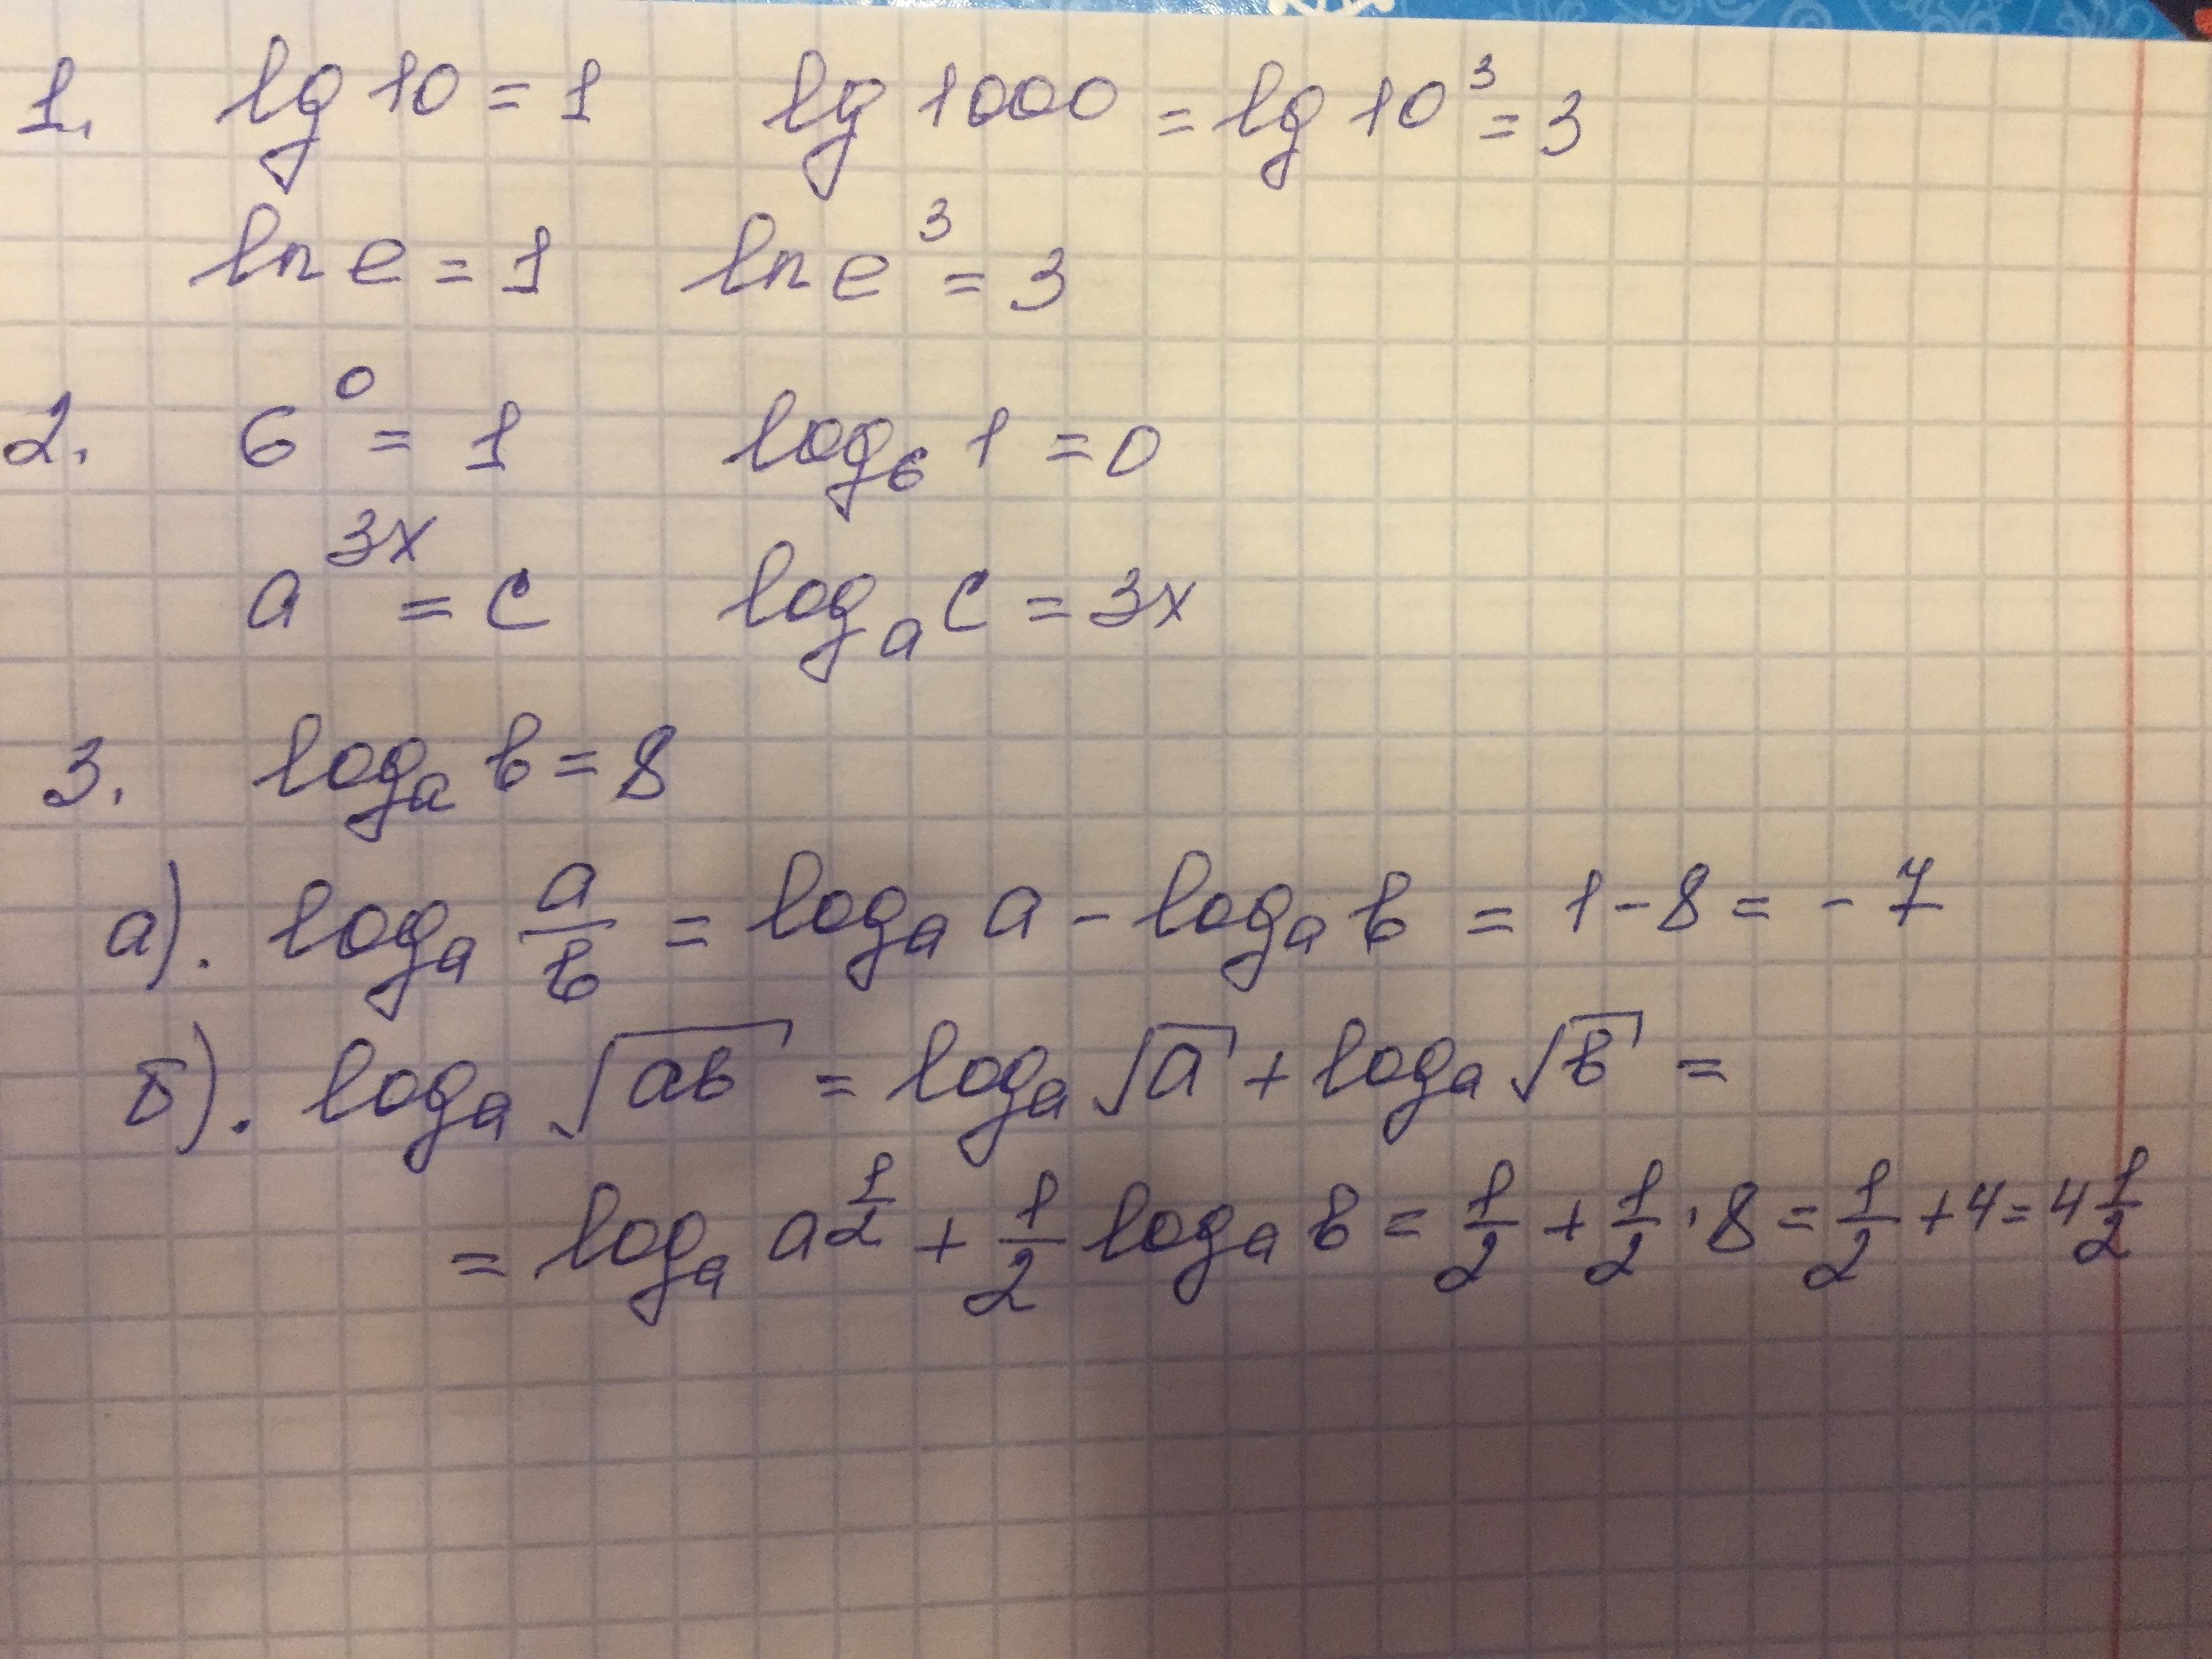 1. lg 10 = 1 lg 1000 = lg 10³ = 3
ln e = 1 ln e³ = 3
2. 6⁰ = 1 log₆ 1 = 0
a³ˣ = c logₐ c = 3x
3. logₐ b = 8
а). logₐ a/b = logₐ a - logₐ b = 1 - 8 = - 7
б). logₐ √(ab) = logₐ √a + logₐ √b =
= logₐ a^(1/2) + 1/2 logₐ b = 1/2 + 1/2 · 8 = 1/2 + 4 = 4 1/2